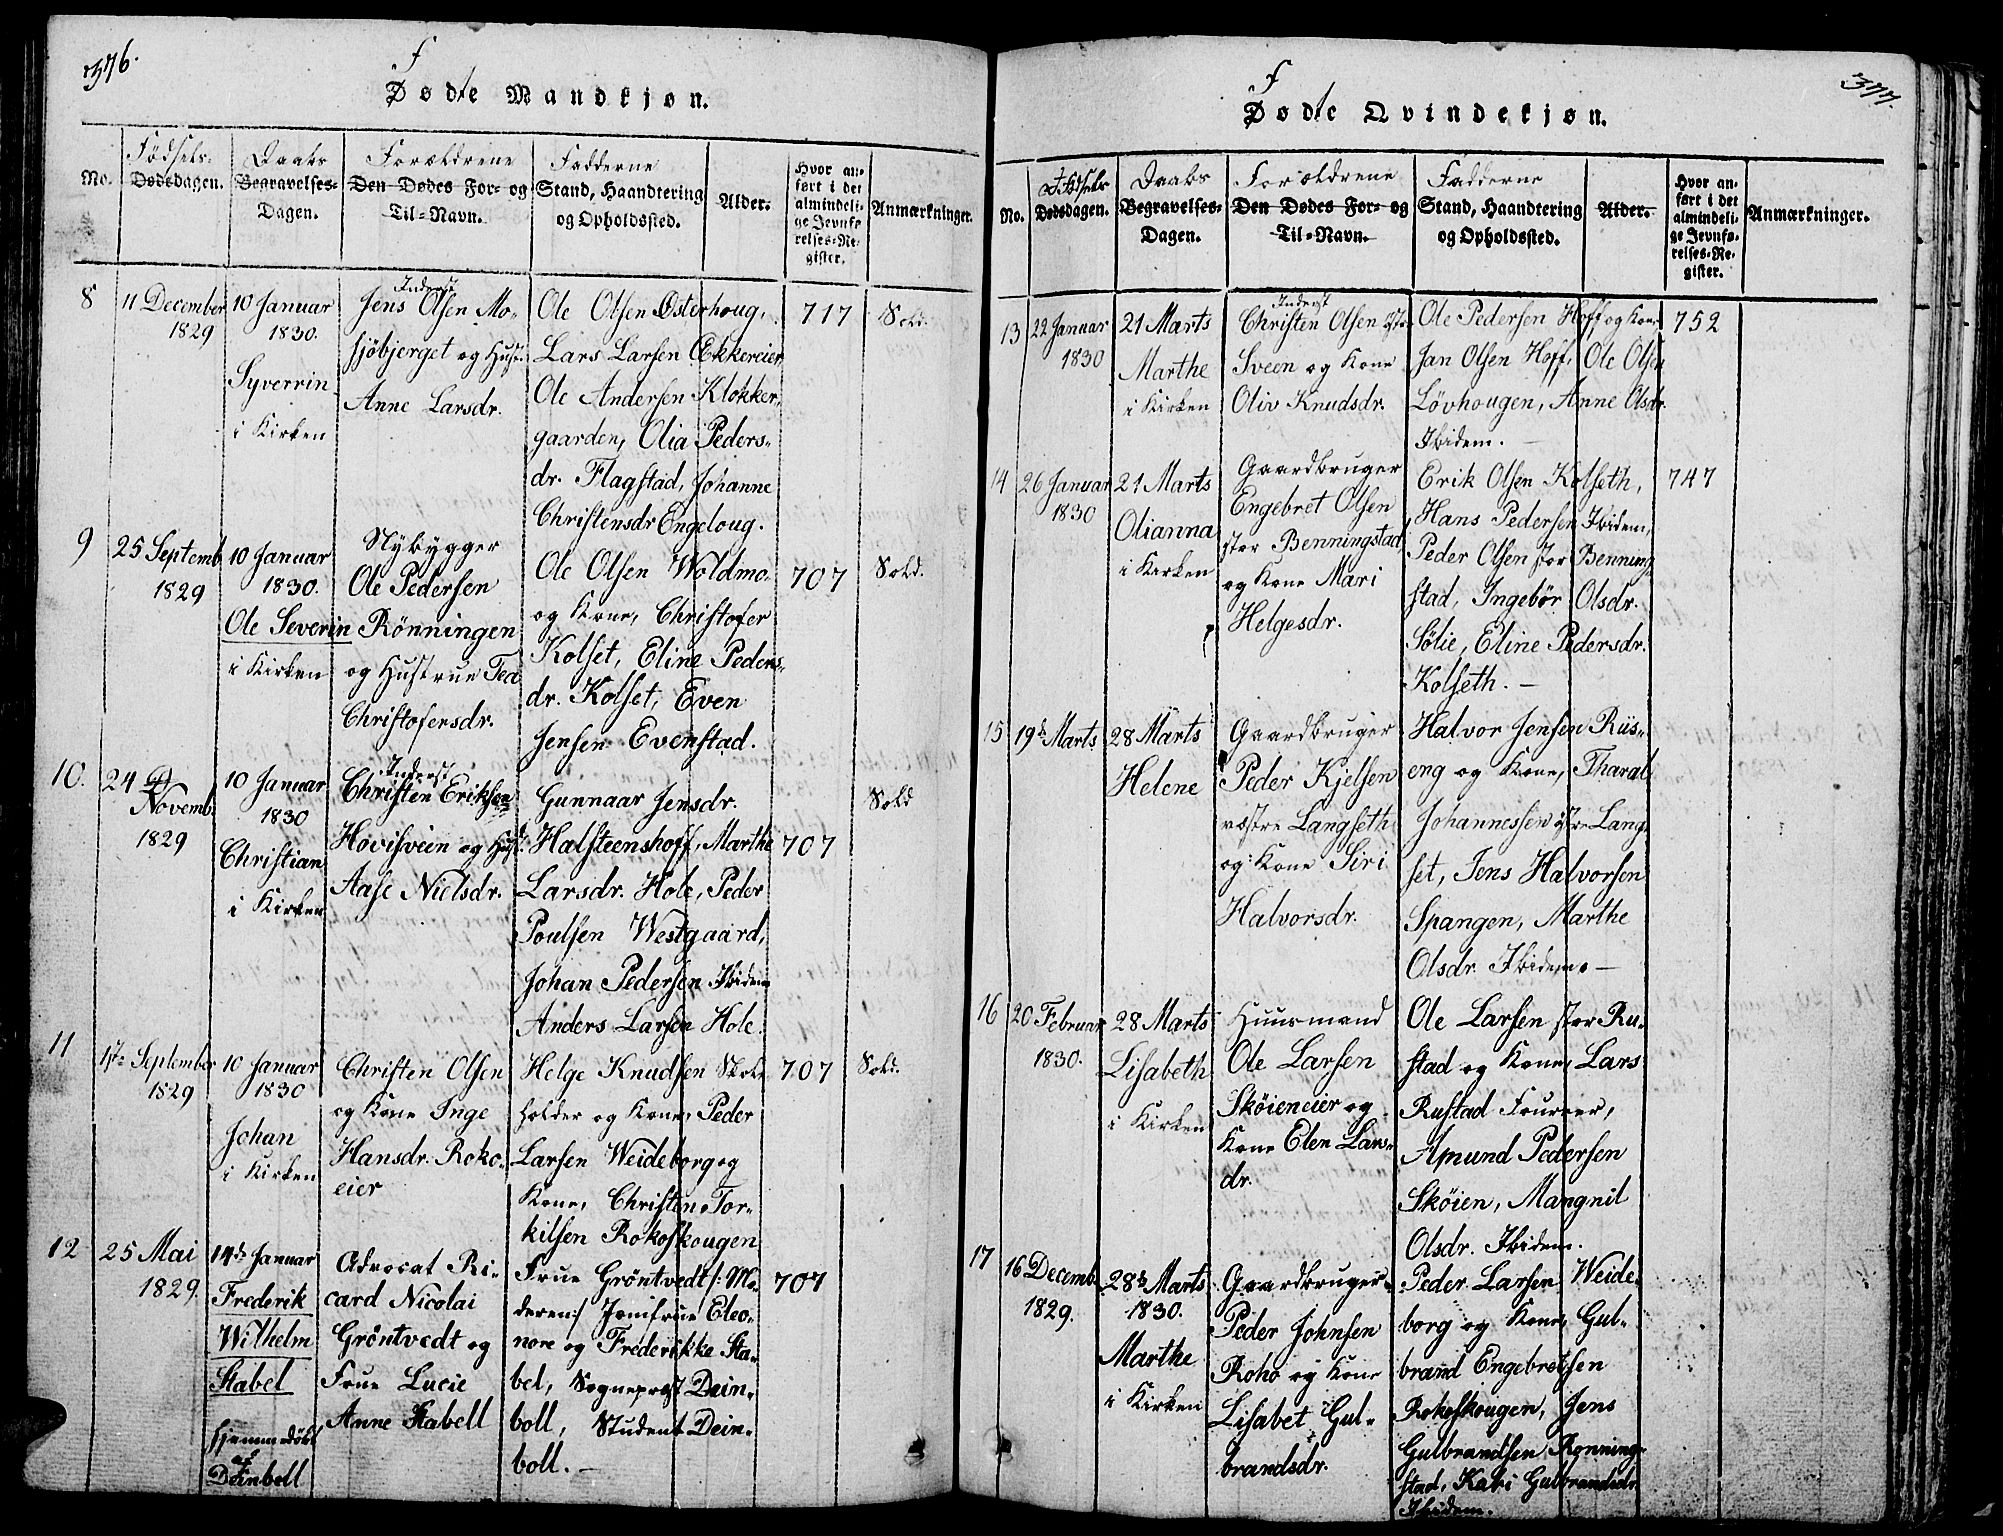 376.
Fødte Mandkjøn.
No.
Födsels-
Dødsdagen.
Daabs
Begravelses-
Dagen.
Forældrene
Den Dødes For- og
Til-Navn.
Fadderne
Stand, Haandtering
og Opholdssted.
Alder.
Hvor an-
ført i det
almindeli-
ge Jevnfø-
relses-Re-
gister.
Anmærkninger.
8
11 December
1829
10 Januar
1830.
Syverrin
i Kirken
Inderst
Jens Olsen Mo-
sjöbjerget og Hust.
Anne Larsdr.
Ole Olsen Østerhoug,
Lars Larsen Ækkereier,
Ole Andersen Klokker-
gaarden, Olia Peders-
dr. Flagstad, Johanne
Christensdr Engeloug.
717
Sold.
9
25 Septemb
1829
10 Januar
1830.
Ole Severin
i Kirken
Nybygger
Ole Pedersen
Rönningen
og Hustrue Tea
Christofersdr.
Ole Olsen Woldmo-
og Kone, Christofer
Kolset, Eline Peders-
dr. Kolset, Even
Jensen Evenstad.
707
Sold.
10.
24 D
Novemb.
1829
10 Januar
1830
Christian
i Kirken
Inderst
Christen Eriksen
Hovisveen og Hust.
Aase Nielsdr.
Gunnaar Jensdr.
Halsteenshoff, Marthe
Larsdr. Hole, Peder
Poulsen Westgaard,
Johan Pedersen Ibidem
Anders Larsen Hole.
707
Sold
11
1ste September
1829
10 Januar
1830
Johan
i Kirken
Christen Olsen
og Kone Inge
Hansdr. Roko-
eier
Helge Knudsen Skole-
holder og Kone, Peder
Larsen Weideborg og
Kone, Christen Tor-
kilsen Rokoskougen
707
Sold.
12
25 Mai
1829.
14de Januar
Frederik
Wilhelm
Stabel
hjemmedöbt
af
Deinboll
Advocat Ri-
card Nicolai
Gröntvedt og
Frue Lucie
Anne Stabell
Frue Gröntvedt /: Mo-
deren:/ Jomfrue Eleo-
nore og Frederikke Sta-
bel, Sogneprest Dein-
boll, Student Dein-
boll. —
707
377.
Fødte Qvindekjøn.
No.
Födsels
Dødsdagen.
Daabs
Begravelses-
Dagen.
Forældrene
Den Dødes For- og
Til-Navn.
Fadderne
Stand, Haandtering
og Opholdssted.
Alder.
Hvor an-
ført i det
almindeli-
ge Jevnfø-
relses-Re-
gister.
Anmærkninger.
13
22 Januar
1830
21 Marts
Marthe
i Kirken
Inderst
Christen Olsen ystre
Sveen og Kone
Oliv Knudsdr.
Ole Pedersen Hoff og Kone
Jan Olsen Hoff, Ole Olsen
Lövhougen, Anne Olsdr.
Ibidem. —
752
14
26 Januar
1830
21 Marts
Olianna
i Kirken
Gaardbruger
Engebret Olsen
stor Benningstad
og Kone Mari
Helgesdr.
Erik Olsen Kolseth,
Hans Pedersen Ibidem,
Peder Olsen stor Benning-
stad, Ingebör Olsdr.
Sölie, Eline Pedersdr.
Kolseth. —
747
15
19de Marts
28 Marts
Helene
Gaardbruger
Peder Kjelsen
vestre Langseth
og Kone Siri
Halvorsdr.
Halvor Jensen Riis-
eng og Kone, Tharal
Johannessen ystre Lang-
set, Jens Halvorsen
Spangen, Marthe
Olsdr. Ibidem. —
16
20 Februar
1830.
28 Marts
Lisabeth
i Kirken
Huusmand
Ole Larsen
Sköieneier og
Kone Elen Lars-
dr.
Ole Larsen stor Ru-
stad og Kone, Lars
Rustad Foureer,
Amund Pedersen
Sköien, Mangnil
Olsdr. Ibidem.
17
16 Decemb.
1829.
28de Marts
1830.
Marthe
i Kirken
Gaardbruger
Peder Johnsen
Roho og Kone
Lisabet Gul-
brandsdr.
Peder Larsen Weide-
borg og Kone, Gul-
brand Engebretsen
Rokoskougen, Jens
Gulbrandsen Ronning-
stad, Kari Gulbrandsdr
Ibidem.